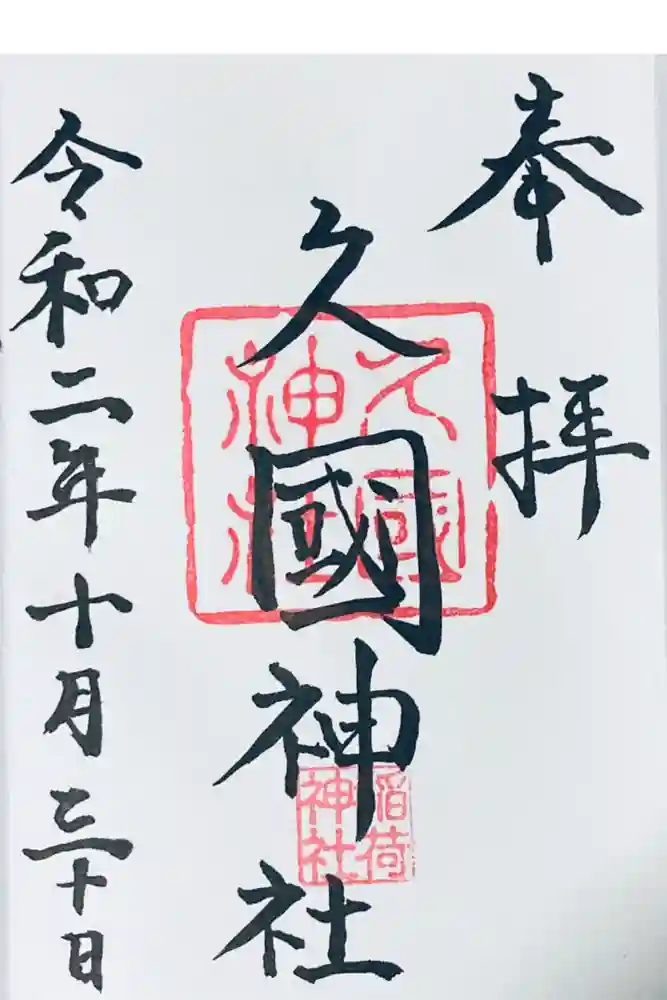 奉拝
久國神社
令和二年十月三十日
久國神社
稲荷神社